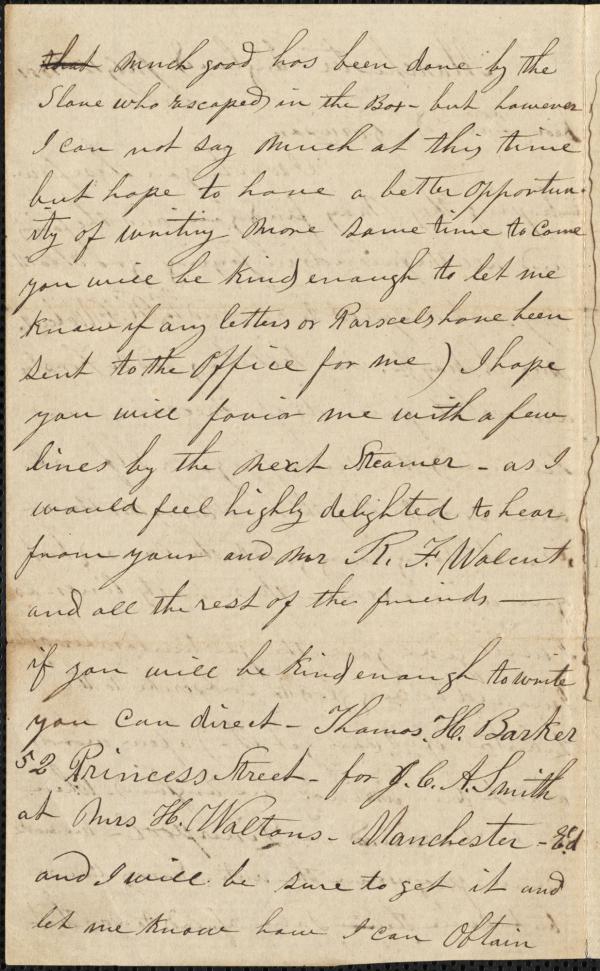 that much good has been done by the
Slave who escaped in the Box - but however
I can not say much at this time
but hope to have a better opportun-
ity of writing more some time to come
you will be kind enough to let me
know if any letters or Parscels have been
sent to the Office for me) I hope
you will favior me with a few
lines by the next Steamer - as I
would feel highly delighted to hear
from your and Mr R. F. Walcut.
and all the rest of the friends —
if you will be kind enough to write
you can direct - Thomas. H. Barker
52 Princess Street - for J. C. A. Smith
at Mrs H. Waltons - Manchester - Ed
and I will be sure to get it and
let me know how I can Obtain